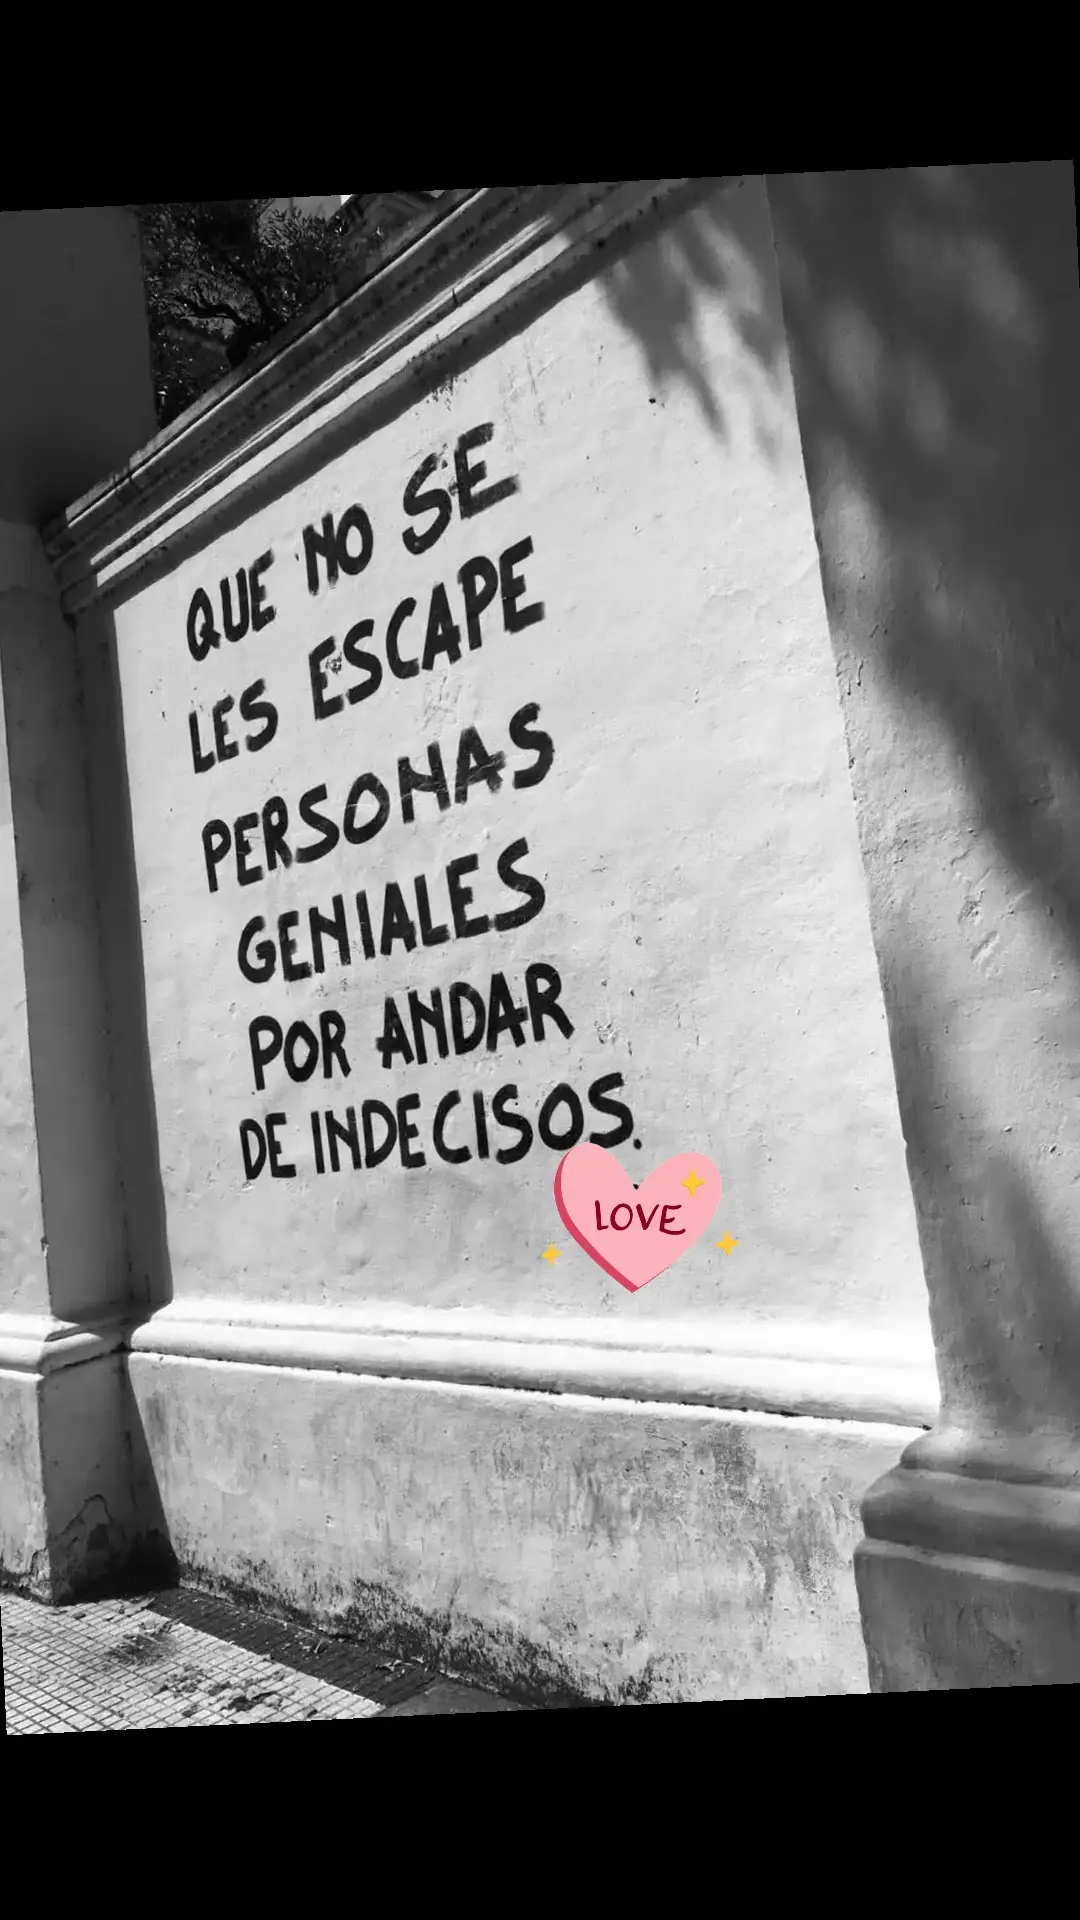 QUE NO SE
LES ESCAPE
PERSONAS
GENIALES
POR ANDAR
DE INDECISOS.
LOVE